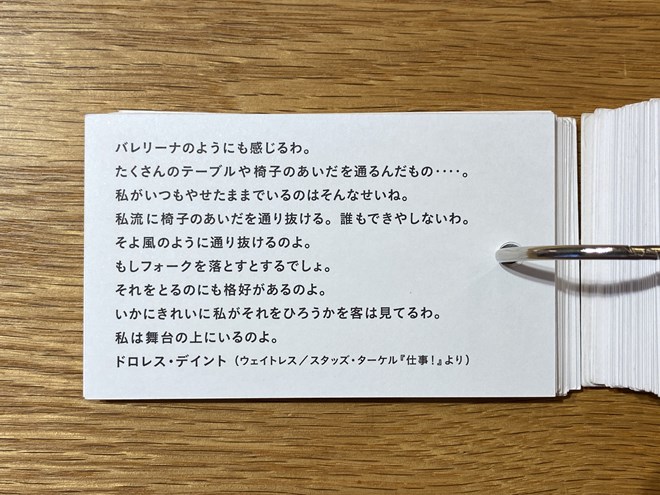 バレリーナのようにも感じるわ。
たくさんのテーブルや椅子のあいだを通るんだもの‥‥。
私がいつもやせたままでいるのはそんなせいね。
私流に椅子のあいだを通り抜ける。誰もできやしないわ。
そよ風のように通り抜けるのよ。
もしフォークを落とすとするでしょ。
それをとるのにも格好があるのよ。
いかにきれいに私がそれをひろうかを客は見てるわ。
私は舞台の上にいるのよ。
ドロレス・デイント（ウェイトレス／スタッズ・ターケル『仕事！』より）